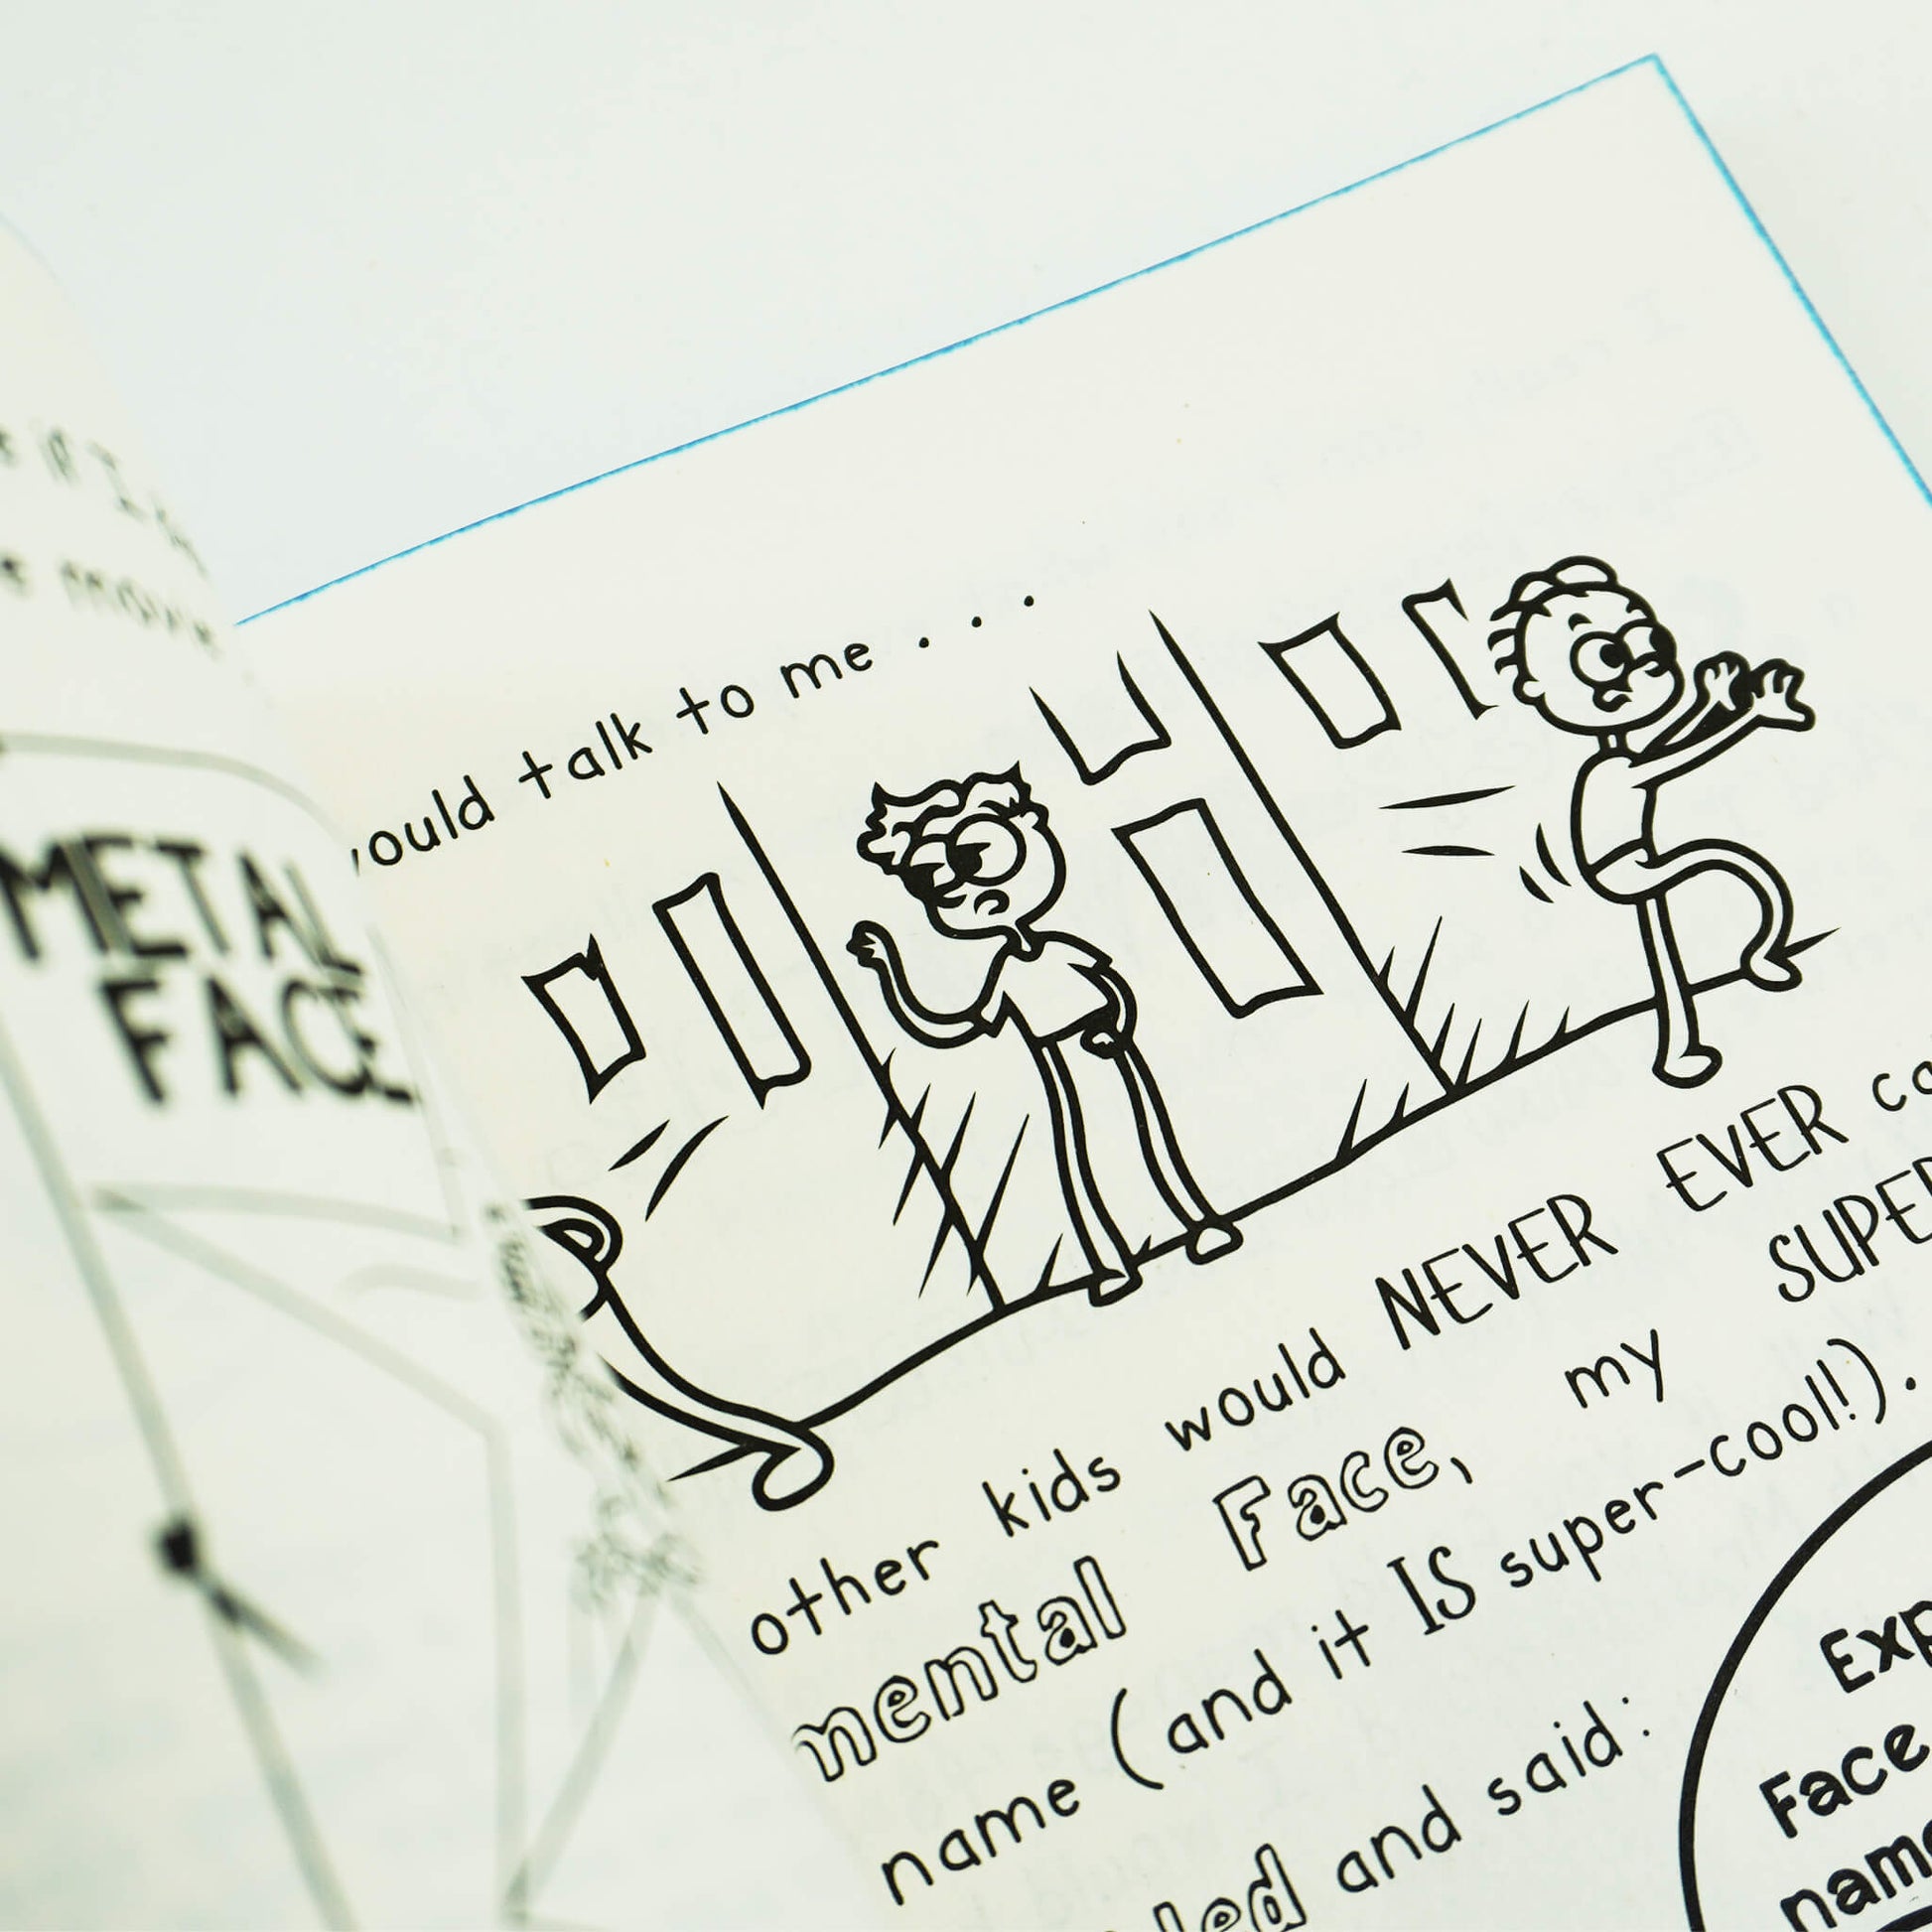 METAL
FACE
ould talk to me . . .
other kids would NEVER EVER
mental Face, my SUPER
name (and it IS super-cool!).
and said:
Face